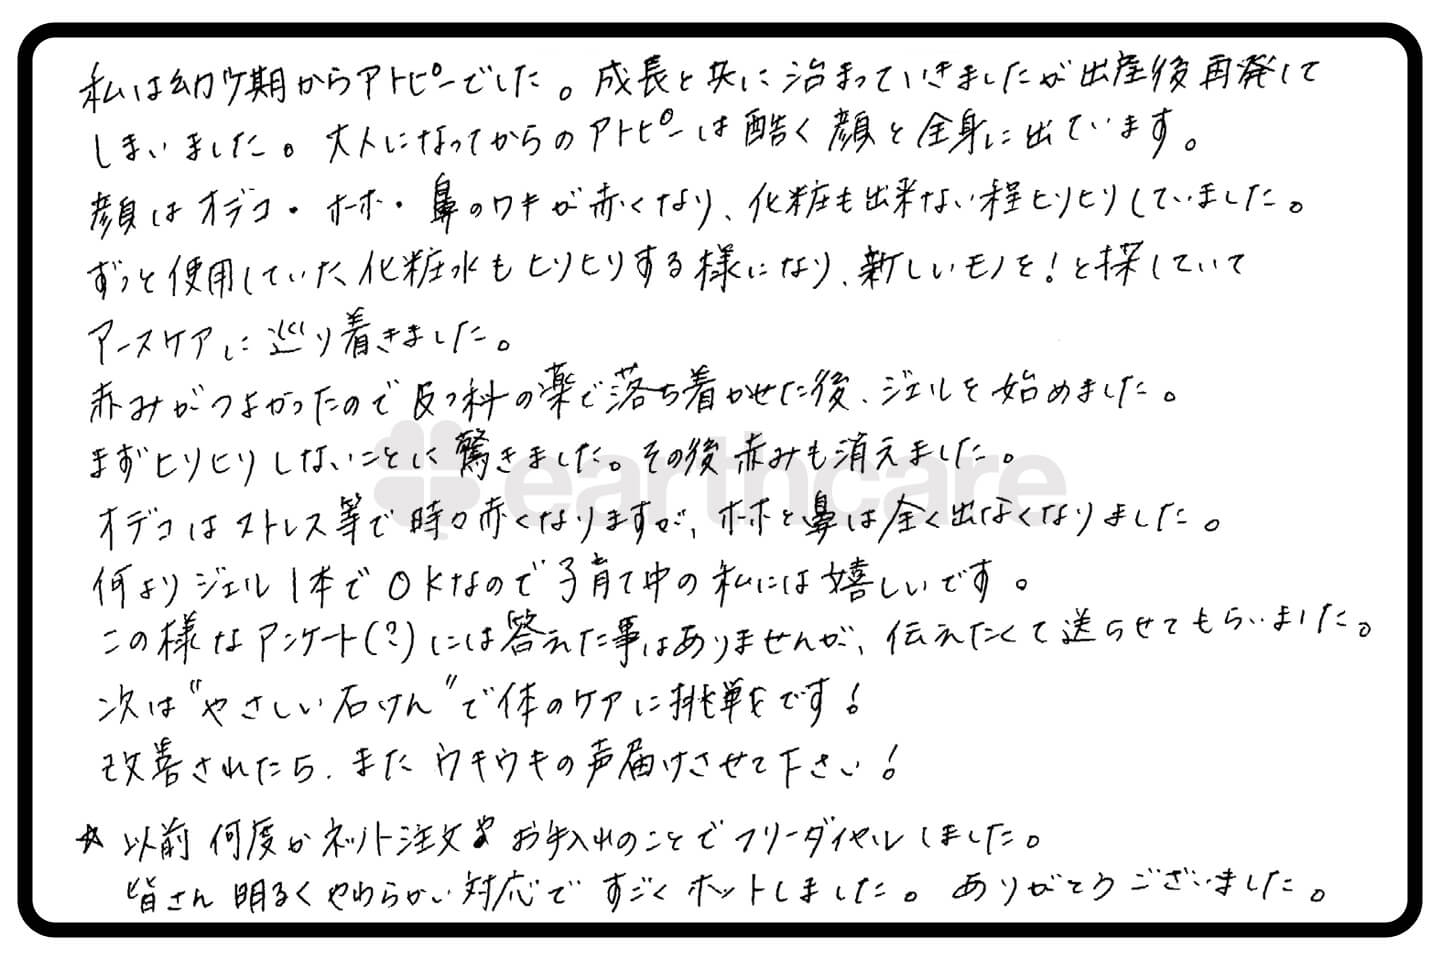 私は幼少期からアトピーでした。成長と共に治まっていきましたが出産後再発して
しまいました。大人になってからのアトピーは酷く顔と全身に出ています。
顔はオデコ・ホホ・鼻のワキが赤くなり、化粧も出来ない程ヒリヒリしていました。
ずっと使用していた化粧水もヒリヒリする様になり、新しいモノを!と探していて
アースケアに巡り着きました。
赤みがつよかったので皮フ科の薬で落ち着かせた後、ジェルを始めました。
まずヒリヒリしないことに驚きました。その後赤みも消えました。
earthcare
オデコはストレス等で時々赤くなりますが、ホホと鼻は全く出なくなりました。
何よりジェル1本でOKなので子育て中の私には嬉しいです。
この様なアンケート(?)には答えた事はありませんが、伝えたくて送らせてもらいました。
次は"やさしい石けん"で体のケアに挑戦をです!
改善されたら、またウキウキの声届けさせて下さい!
☆以前何度かネット注文やお手入れのことでフリーダイヤルしました。
皆さん明るくやわらかい対応ですごくホットしました。ありがとうございました。